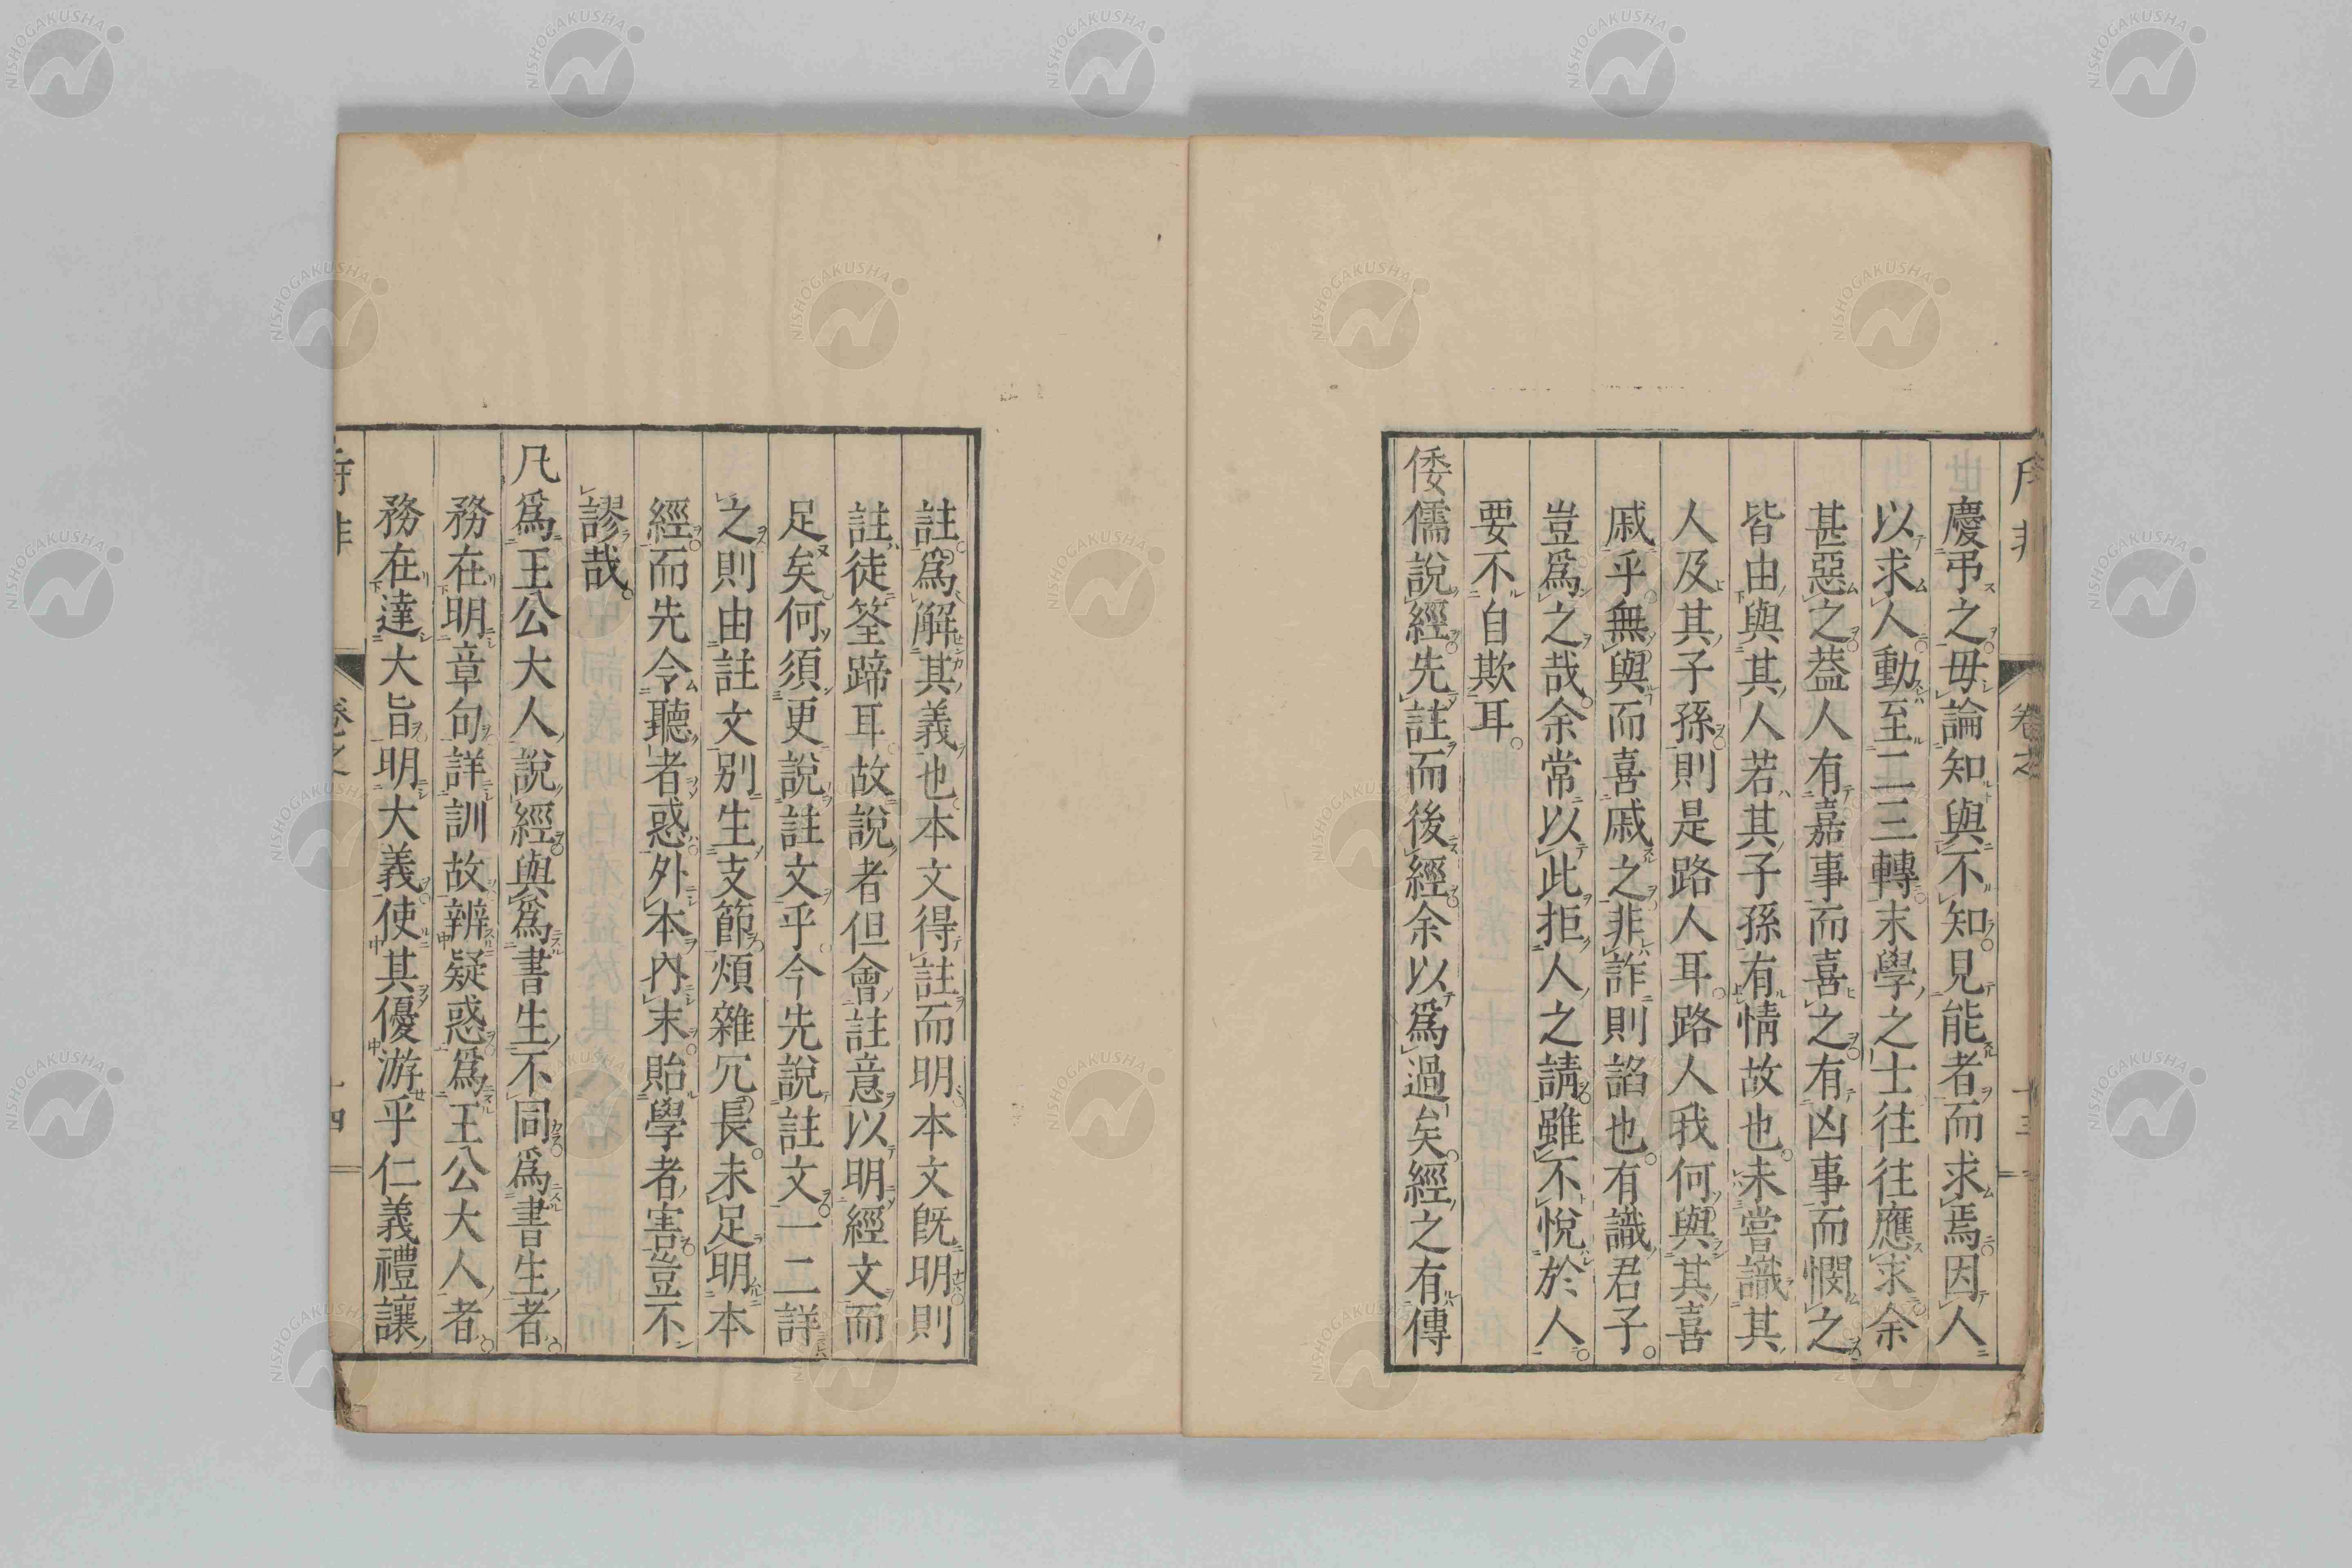 慶弔之。毋論知與不知。見能者而求焉。因人
以求人。動至二三轉。末學之士往往應求余
甚惡之。葢人有嘉事而喜之。有凶事而憫之。
皆由與其人若其子孫有情故也。未嘗識其
人及其子孫。則是路人耳。路人我何與其喜
戚乎。無與而喜戚之。非詐則諂也。有識君子。
豈爲之哉。余常以此拒人之請。雖不悅於人。
要不自欺耳。
倭儒說經。先註而後經。余以爲過矣。經之有傳
卷之
十三
註。爲解其義也。本文得註而明。本文旣明。則
註徒筌蹄耳。故說者但會註意。以明經文而
足矣。何須更說註文乎。今先說註文。一二詳
之。則由註文別生支節。煩雜冗長。未足明本
經。而先令聽者惑。外本內末。貽學者害。豈不
謬哉。
凡爲王公大人說經。與爲書生不同。爲書生者。
務在明章句。詳訓故。辨疑惑。爲王公大人者。
務在達大旨。明大義。使其優游乎仁義禮讓
卷之